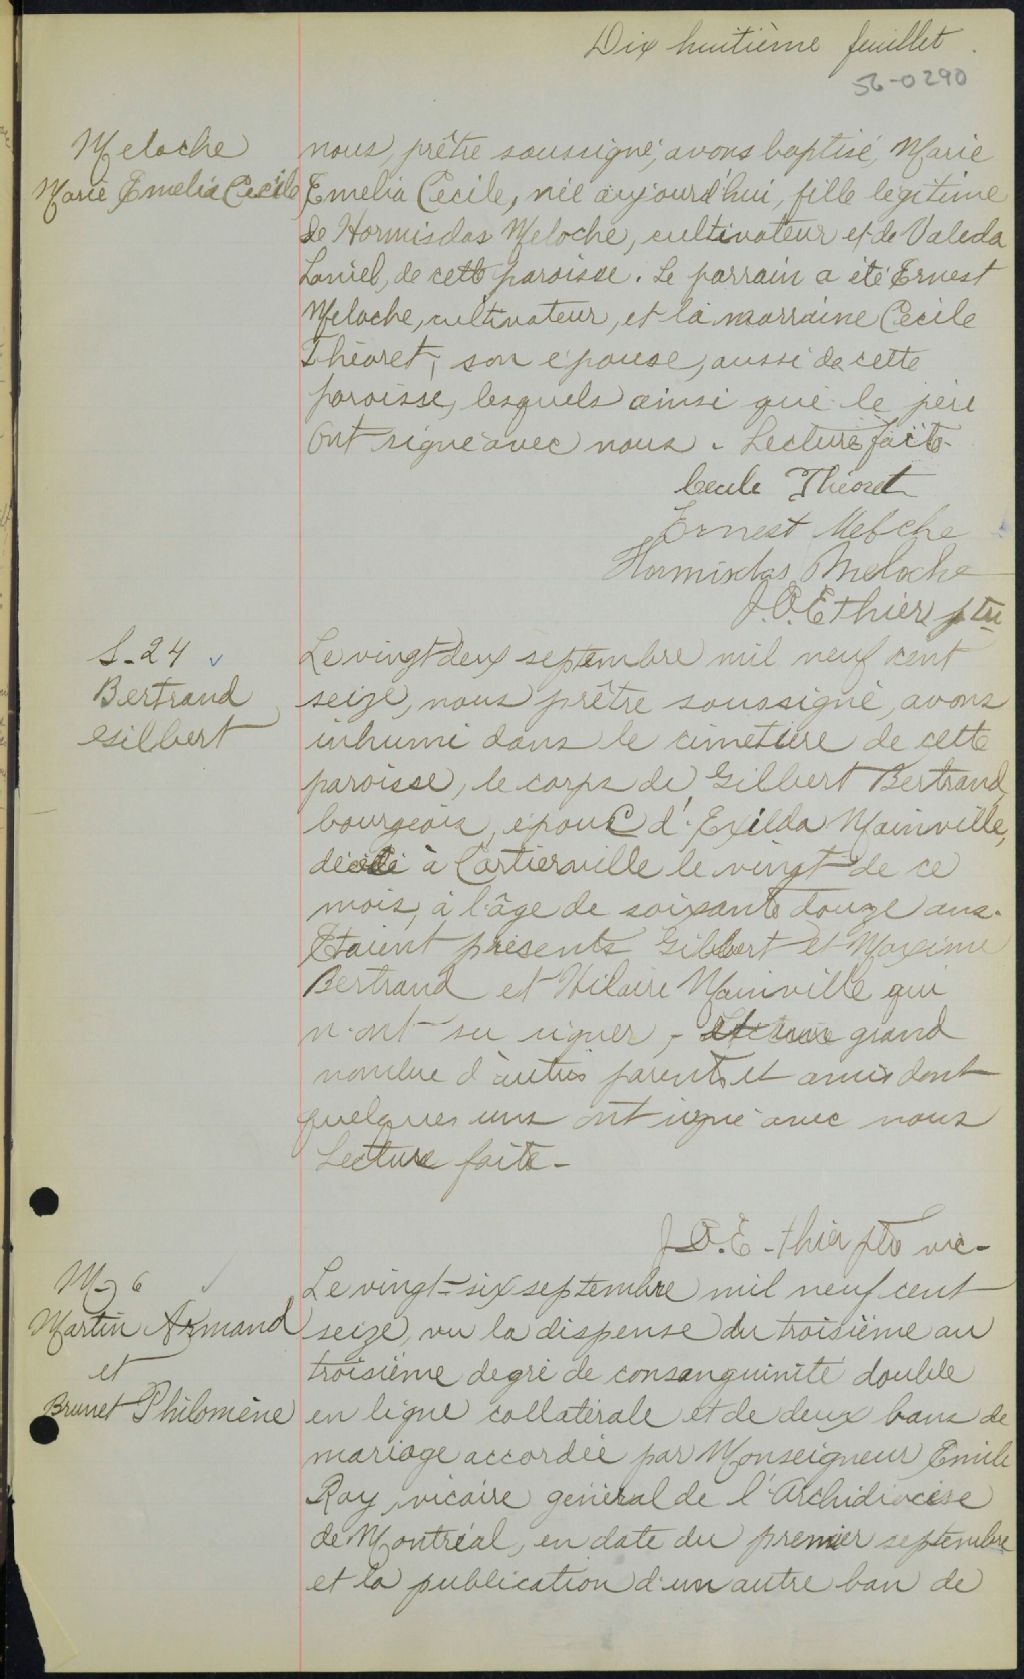 Dix huitième feuillet.
56-0290
Meloche
Marie Emelia Cecile
nous, prêtre soussigné, avons baptisé, Marie
Emelia Cecile, née aujourd'hui, fille légitime
de Hormisdas Meloche, cultivateur et de Valeda
Laniel, de cette paroisse. Le parrain a été Ernest
Meloche, cultivateur, et la marraine Cecile
Théoret, son épouse, aussi de cette
paroisse, lesquels ainsi que le père
ont signé avec nous. Lecture faite.
Cecile Théoret
Ernest Meloche
Hormisdas Meloche
J.O. Ethier ptre
S-24
Bertrand
Gilbert
Le vingt deux septembre mil neuf cent
seize, nous prêtre soussigné, avons
inhumé dans le cimetière de cette
paroisse, le corps de Gilbert Bertrand,
bourgeois, épouc d'Exilda Mainville,
décédé à Cartierville le vingt de ce
mois, à l'âge de soixante douze ans.
Etaient présents Gilbert et Maxime
Bertrand et Hilaire Mainville qui
n'ont su signer, - et un grand
nombre d'autres parents et amis dont
quelques uns ont signé avec nous
Lecture faite -
J.O. Ethier ptre vic-
M-6
Martin Armand
et
Brunet Philomène
Le vingt-six septembre mil neuf cent
seize, vu la dispense du troisième au
troisième degré de consanguinité double
en ligne collatérale et de deux bans de
mariage accordée par Monseigneur Emile
Roy, vicaire général de l'Archidiocèse
de Montréal, en date du premier septembre
et la publication d'un autre ban de